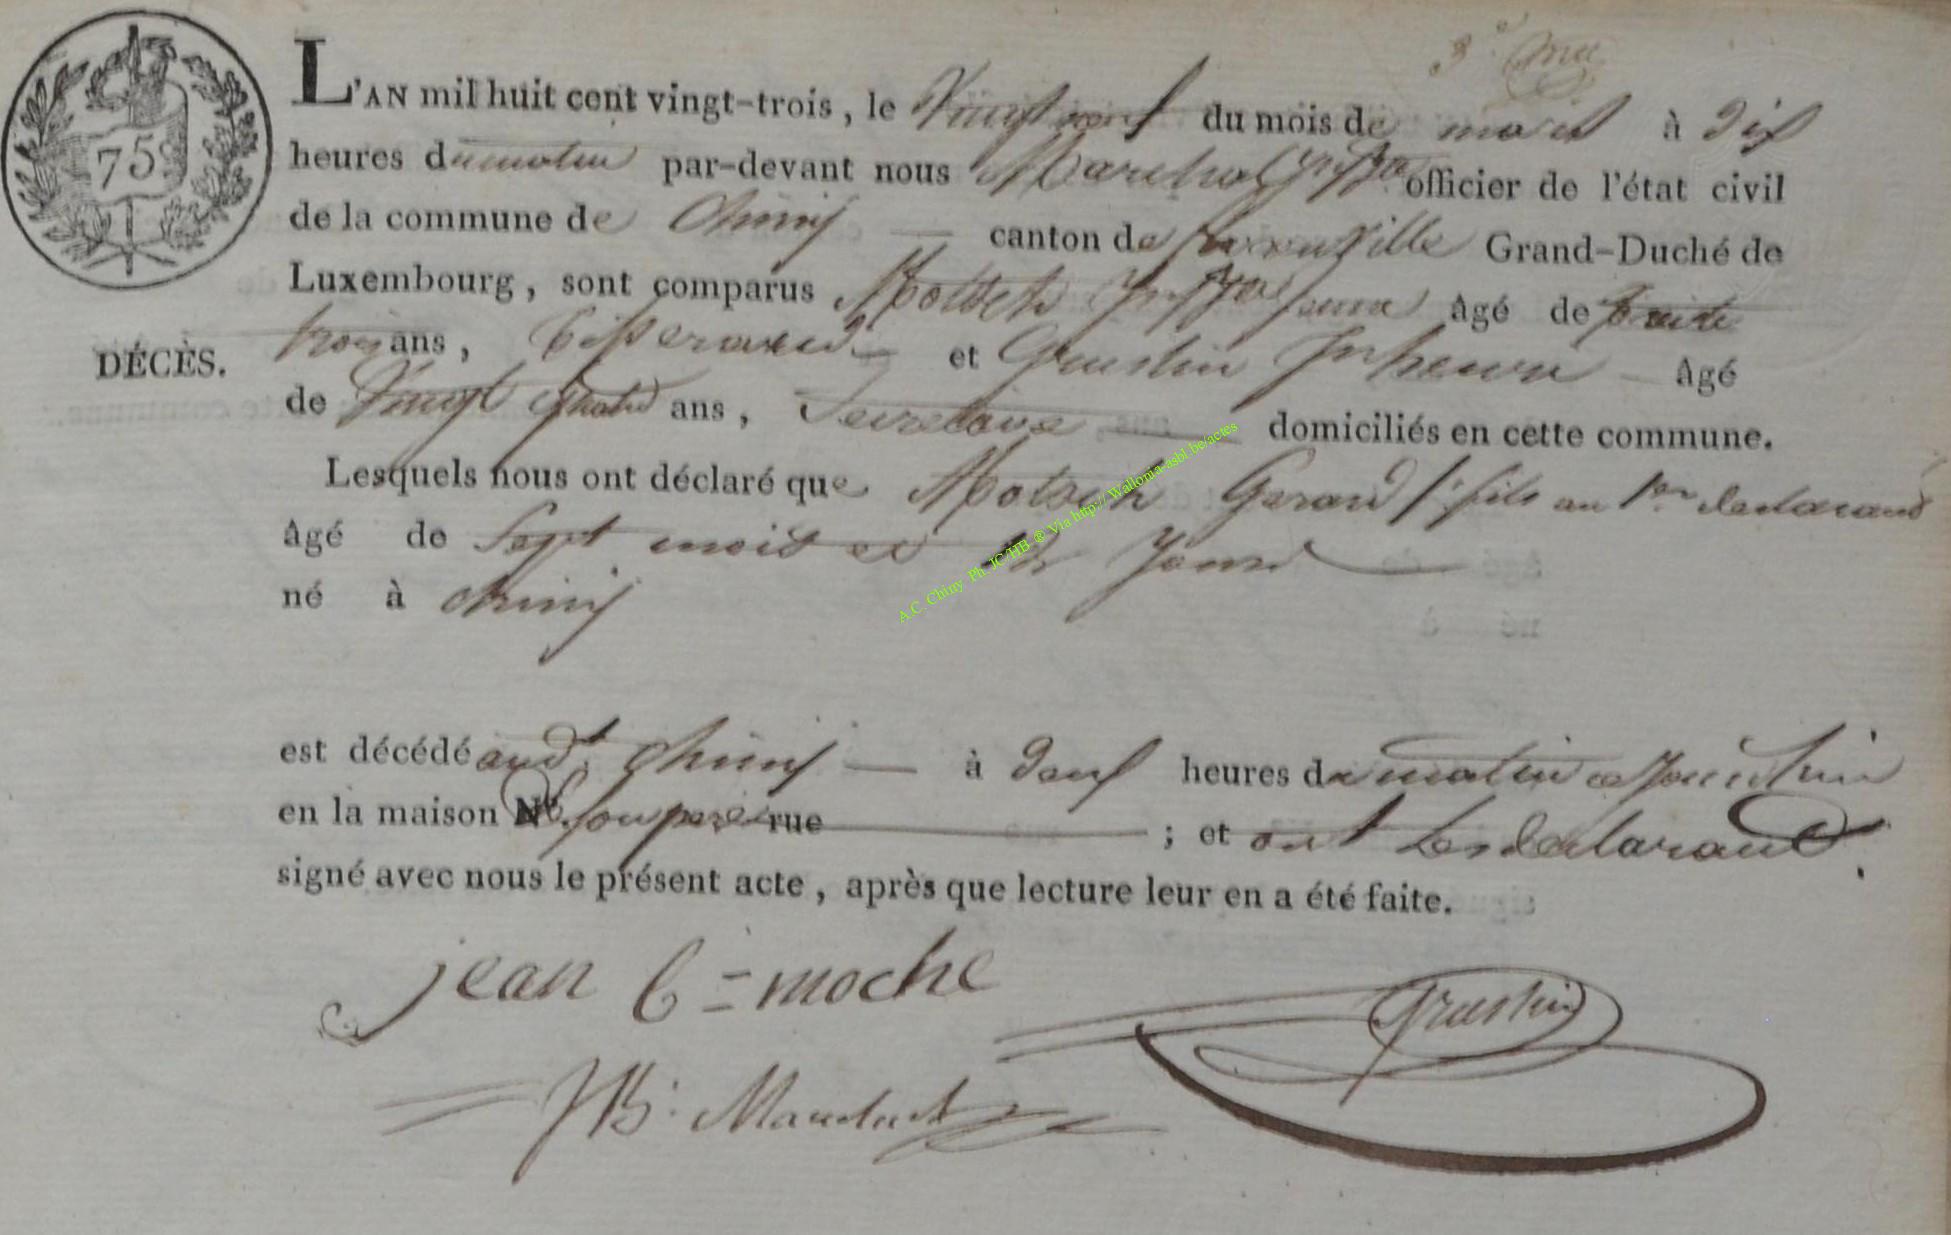 75
L'AN mil huit cent vingt-trois, le Vingt neuf du mois de mars à dix
heures du matin par-devant nous officier de l'état civil
de la commune de Chiny canton de Grand-Duché de
Luxembourg, sont comparus Motsch jeune âgé de trente
DÉCÈS.
trois ans, tisserand et Grustin Jn henri âgé
de Vingt quatre ans, Secretaire domiciliés en cette commune.
Lesquels nous ont déclaré que Motsch Gerard fils au 1er declarant
âgé de Sept mois et jours
né à chiny
est décédé aud.t Chiny à deux heures du matin
en la maison N°. son père rue ; et ont Les declarants
signé avec nous le présent acte, après que lecture leur en a été faite.
jean b = moche
Grustin
JB: Marechal
A.C. Chiny Ph JC/HB ® Via http://Wallonia-asbl.be/actes